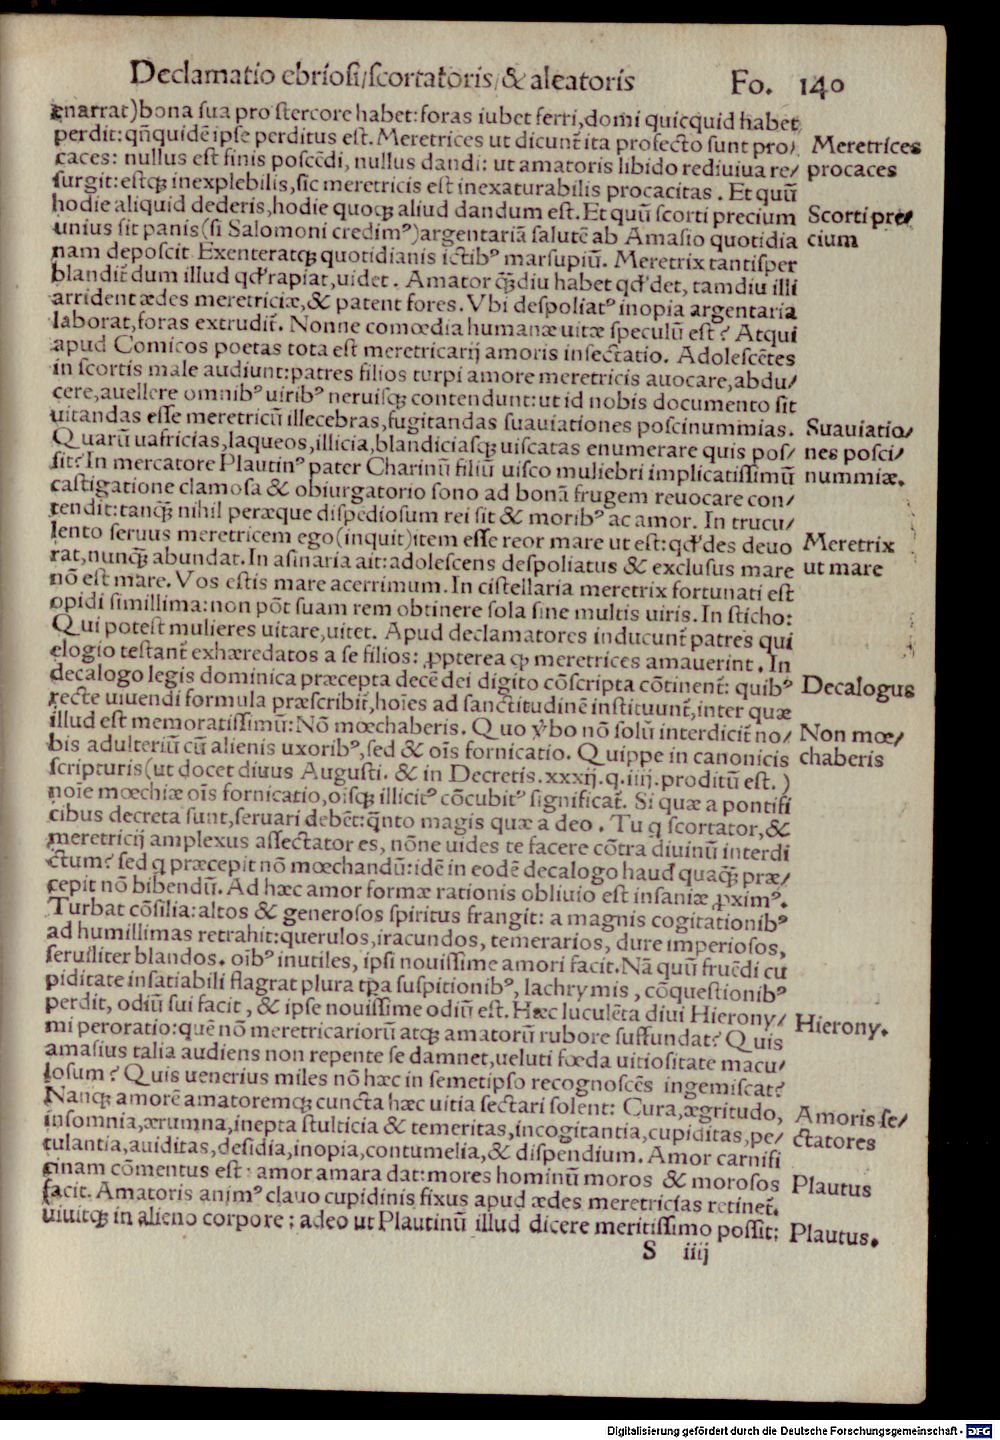 Declamatio ebriosi/scortatoris/& aleatoris Fo. 140
enarrat)bona sua pro stercore habet: foras iubet ferri,domi quicquid habet
perdit: qñquidē ipse perditus est. Meretrices ut dicunt̃ ita profecto sunt pro/
caces: nullus est finis poscēdi, nullus dandi: ut amatoris libido rediuiua re/
surgit: estqꝫ inexplebilis,sic meretricis est inexaturabilis procacitas. Et quū
hodie aliquid dederis,hodie quoqꝫ aliud dandum est. Et quū scorti precium
unius sit panis(si Salomoni credimꝰ)argentariā salutē ab Amasio quotidia
nam deposcit. Exenteratqꝫ quotidianis ictibꝰ marsupiū. Meretrix tantisper
blandit̃ dum illud qđ rapiat,uidet. Amator q̄ꝫdiu habet qđ det, tamdiu illi
arrident ædes meretriciæ,& patent fores. Vbi despoliatꝰ inopia argentaria
laborat,foras extrudit̃. Nonne comœdia humanæ uitæ speculū est? Atqui
apud Comicos poetas tota est meretricarij amoris insectatio. Adolescētes
in scortis male audiunt: patres filios turpi amore meretricis auocare,abdu/
cere,auellere omnibꝰ uiribꝰ neruisqꝫ contendunt: ut id nobis documento sit
uitandas esse meretricū illecebras,fugitandas suauiationes poscinummias.
Quarū uafricias,laqueos,illicia,blandiciasqꝫ uiscatas enumerare quis pos/
sit? In mercatore Plautinꝰ pater Charinū filiū uisco muliebri implicatissimū
castigatione clamosa & obiurgatorio sono ad bonā frugem reuocare con/
tendit: tanq̄ꝫ nihil peræque dispēdiosum rei sit & moribꝰ ac amor. In trucu/
lento seruus meretricem ego(inquit)item esse reor mare ut est: qđ des deuo
rat,nunq̄ꝫ abundat. In asinaria ait: adolescens despoliatus & exclusus mare
nō est mare. Vos estis mare acerrimum. In cistellaria meretrix fortunati est
opidi simillima: non pōt suam rem obtinere sola sine multis uiris. In sticho:
Qui potest mulieres uitare,uitet. Apud declamatores inducunt̃ patres qui
elogio testant̃ exhæredatos a se filios: ꝓpterea qꝫ meretrices amauerint. In
decalogo legis dominica præcepta decē dei digito cōscripta cōtinent̃: quibꝰ
recte uiuendi formula præscribit̃,hoies ad sanctitudinē instituunt̃,inter quæ
illud est memoratissimū: Nō mœchaberis. Quo ꝟbo nō solū interdicit̃ no/
bis adulteriū cū alienis uxoribꝰ,sed & oīs fornicatio. Quippe in canonicis
scripturis(ut docet diuus Augusti. & in Decretis.xxxij.q.iiij.proditū est.)
noīe mœchiæ oīs fornicatio,oīsqꝫ illicitꝰ cōcubitꝰ significat̃. Si quæ a pontifi
cibus decreta sunt,seruari debēt: q̄nto magis quæ a deo. Tu q scortator,&
meretricij amplexus affectator es, nōne uides te facere cōtra diuinū interdi
ctum? sed q præcepit nō mœchandū: idē in eodē decalogo haud quaq̄ꝫ præ/
cepit nō bibendū. Ad hæc amor formæ rationis obliuio est insaniæ ꝓximꝰ.
Turbat cōsilia: altos & generosos spiritus frangit: a magnis cogitationibꝰ
ad humillimas retrahit: querulos,iracundos, temerarios, dure imperiosos,
seruiliter blandos. oībꝰ inutiles, ipsi nouissime amori facit. Nā quū fruēdi cu
piditate insatiabili flagrat plura tꝑa suspitionibꝰ, lachrymis, cōquestionibꝰ
perdit, odiū sui facit, & ipse nouissime odiū est. Hæc luculēta diui Hierony/
mi peroratio: quē nō meretricariorū atqꝫ amatorū rubore suffundat? Quis
amasius talia audiens non repente se damnet,ueluti fœda uitiositate macu/
losum? Quis uenerius miles nō hæc in semetipso recognoscēs ingemiscat?
Nanqꝫ amorē amatoremqꝫ cuncta hæc uitia sectari solent: Cura,ægritudo,
insomnia,ærumna,inepta stulticia & temeritas,incogitantia,cupiditas,pe/
tulantia,auiditas,desidia,inopia,contumelia,& dispendium. Amor carnifi
cinam cōmentus est: amor amara dat: mores hominū moros & morosos
facit. Amatoris animꝰ clauo cupidinis fixus apud ædes meretricias retinet̃.
uiuitqꝫ in alieno corpore: adeo ut Plautinū illud dicere meritissimo possit:
S iiij
Meretrices
procaces
Scorti pre/
cium
Suauiatio/
nes posci/
nummiæ.
Meretrix
ut mare
Decalogus
Non mœ/
chaberis
Hierony.
Amoris se/
ctatores
Plautus
Plautus.
Digitalisierung gefördert durch die Deutsche Forschungsgemeinschaft - DFG